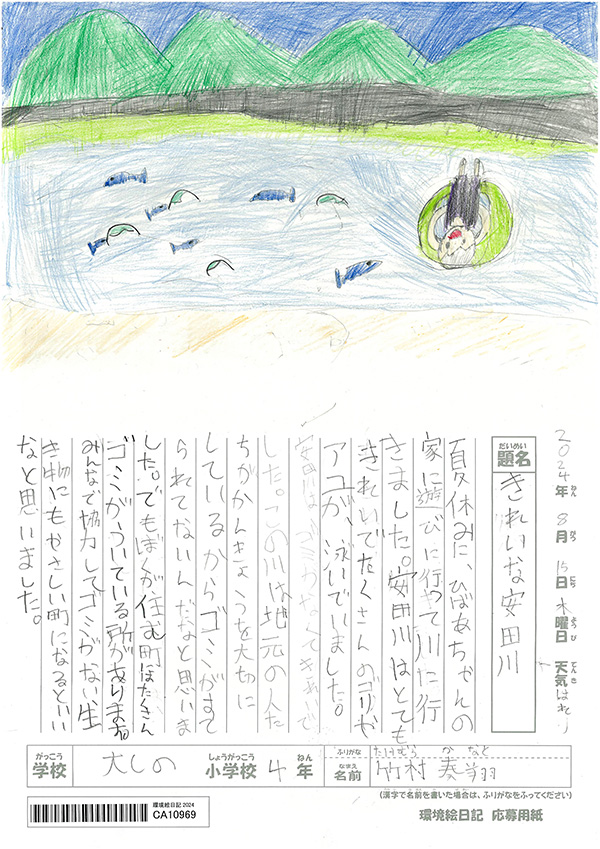 2024年ねん 8月がつ 15日にち 木曜日ようび 天気てんき はれ
だいめい
題名
きれいな安田川
夏休みに、ひばあちゃんの
家に遊びに行って川に行
きました。安田川はとても
きれいでたくさんのゴリや
アユが、泳いでいました。
安田川はゴミがなくてきれいで
した。この川は地元の人た
ちがかんきょうを大切に
しているからゴミがすて
られてないんだなと思いま
した。でもぼくが住む町はたくさん
ゴミがういている所があります。
みんなで協力してゴミがない生
き物にもやさしい町になるといい
なと思いました。
がっこう
学校
大しの
しょうがっこう
小学校
4
ねん
年
ふりがな
たけむら かなと
なまえ
名前
竹村 奏翔
(漢字で名前を書いた場合は、ふりがなをふってください)
環境絵日記2024
CA10969
環境絵日記 応募用紙